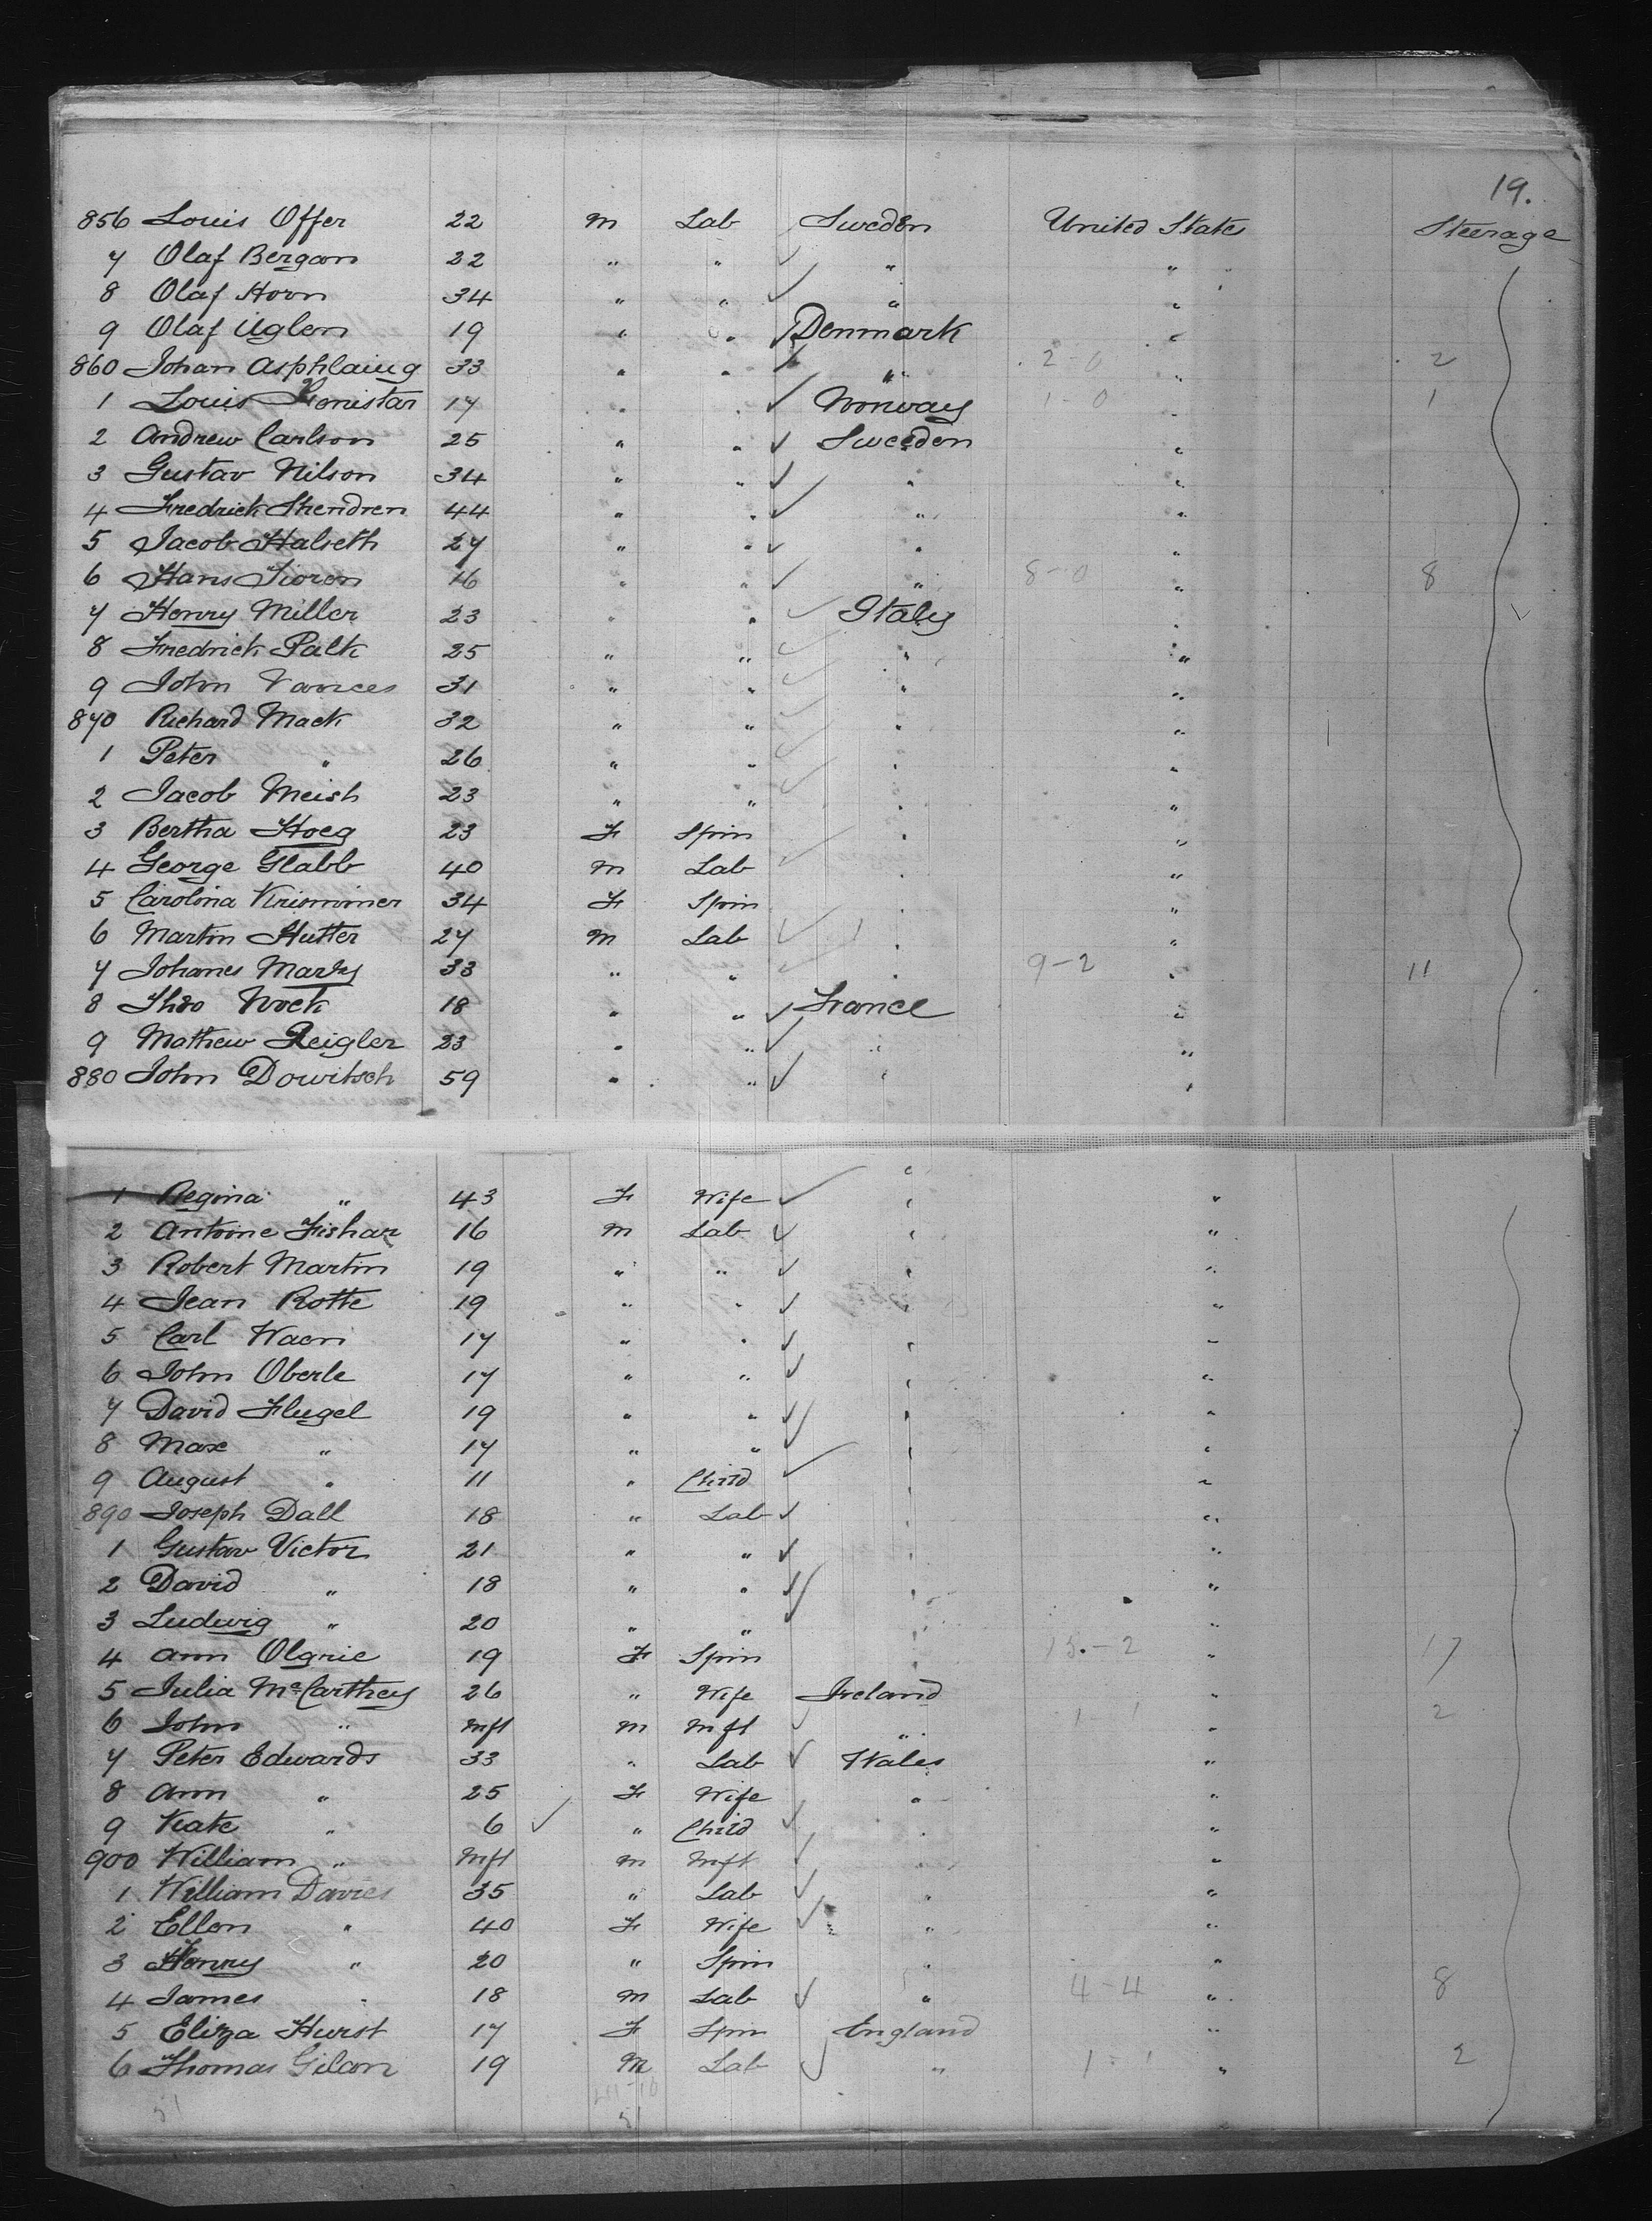 19.
856 Louis Offer 22 m Lab Sweden United States Steerage
7 Olaf Bergan 22 " " " " "
8 Olaf Horn 34 " " " "
9 Olaf Uglen 19 " " Denmark "
860 Johan Asphlaing 33 " " " 2-0 " 2
1 Louis 17 " " Norway 1-0 " 1
2 Andrew Carlson 25 " " Sweeden "
3 Gustav Nilson 34 " " " "
4 Fredrick Shendren 44 " " " "
5 Jacob Halseth 27 " " " "
6 Hans Sioren 16 " " " 8-0 " 8
7 Henry Miller 23 " " Italy "
8 Fredrick Palk 25 " " " "
9 John Vances 31 " " " "
870 Richard Mack 32 " " " "
1 Peter " 26 " " " "
2 Jacob Meish 23 " " " "
3 Bertha Hoeg 23 F Spin " "
4 George Glabb 40 m Lab " "
5 Carolina Krimmer 34 F Spin " "
6 Martin Hutter 27 m Lab " "
7 Johanes Marky 33 " " " 9-2 " 11
8 Theo Nock 18 " " France "
9 Mathew Reigler 23 " " " "
880 John Dowitsch 59 " " " "
1 Regina " 43 F Wife " "
2 Antoine Fishar 16 m Lab " "
3 Robert Martin 19 " " " "
4 Jean Rotte 19 " " " "
5 Carl Waen 17 " " " "
6 John Oberle 17 " " " "
7 David Flugel 19 " " " "
8 Max " 17 " " " "
9 August " 11 " Child " "
890 Joseph Dall 18 " Lab " "
1 Gustav Victor 21 " " " "
2 David " 18 " " " "
3 Ludwig " 20 " " " "
4 Ann Olgnie 19 F Spin " 15-2 " 17
5 Julia McCarthey 26 " Wife Ireland "
6 John " Inft m Inft " 1-1 " 2
7 Peter Edwards 33 " Lab Wales "
8 Ann " 25 F Wife " "
9 Kate " 6 " Child " "
900 William " Inft m Inft " "
1 William Davies 35 " Lab " "
2 Ellen " 40 F Wife " "
3 Henry " 20 " Spin " "
4 James " 18 m Lab " 4-4 " 8
5 Eliza Hurst 17 F Spin England "
6 Thomas Gilean 19 M Lab " 1-1 " 2
51 41-10
51